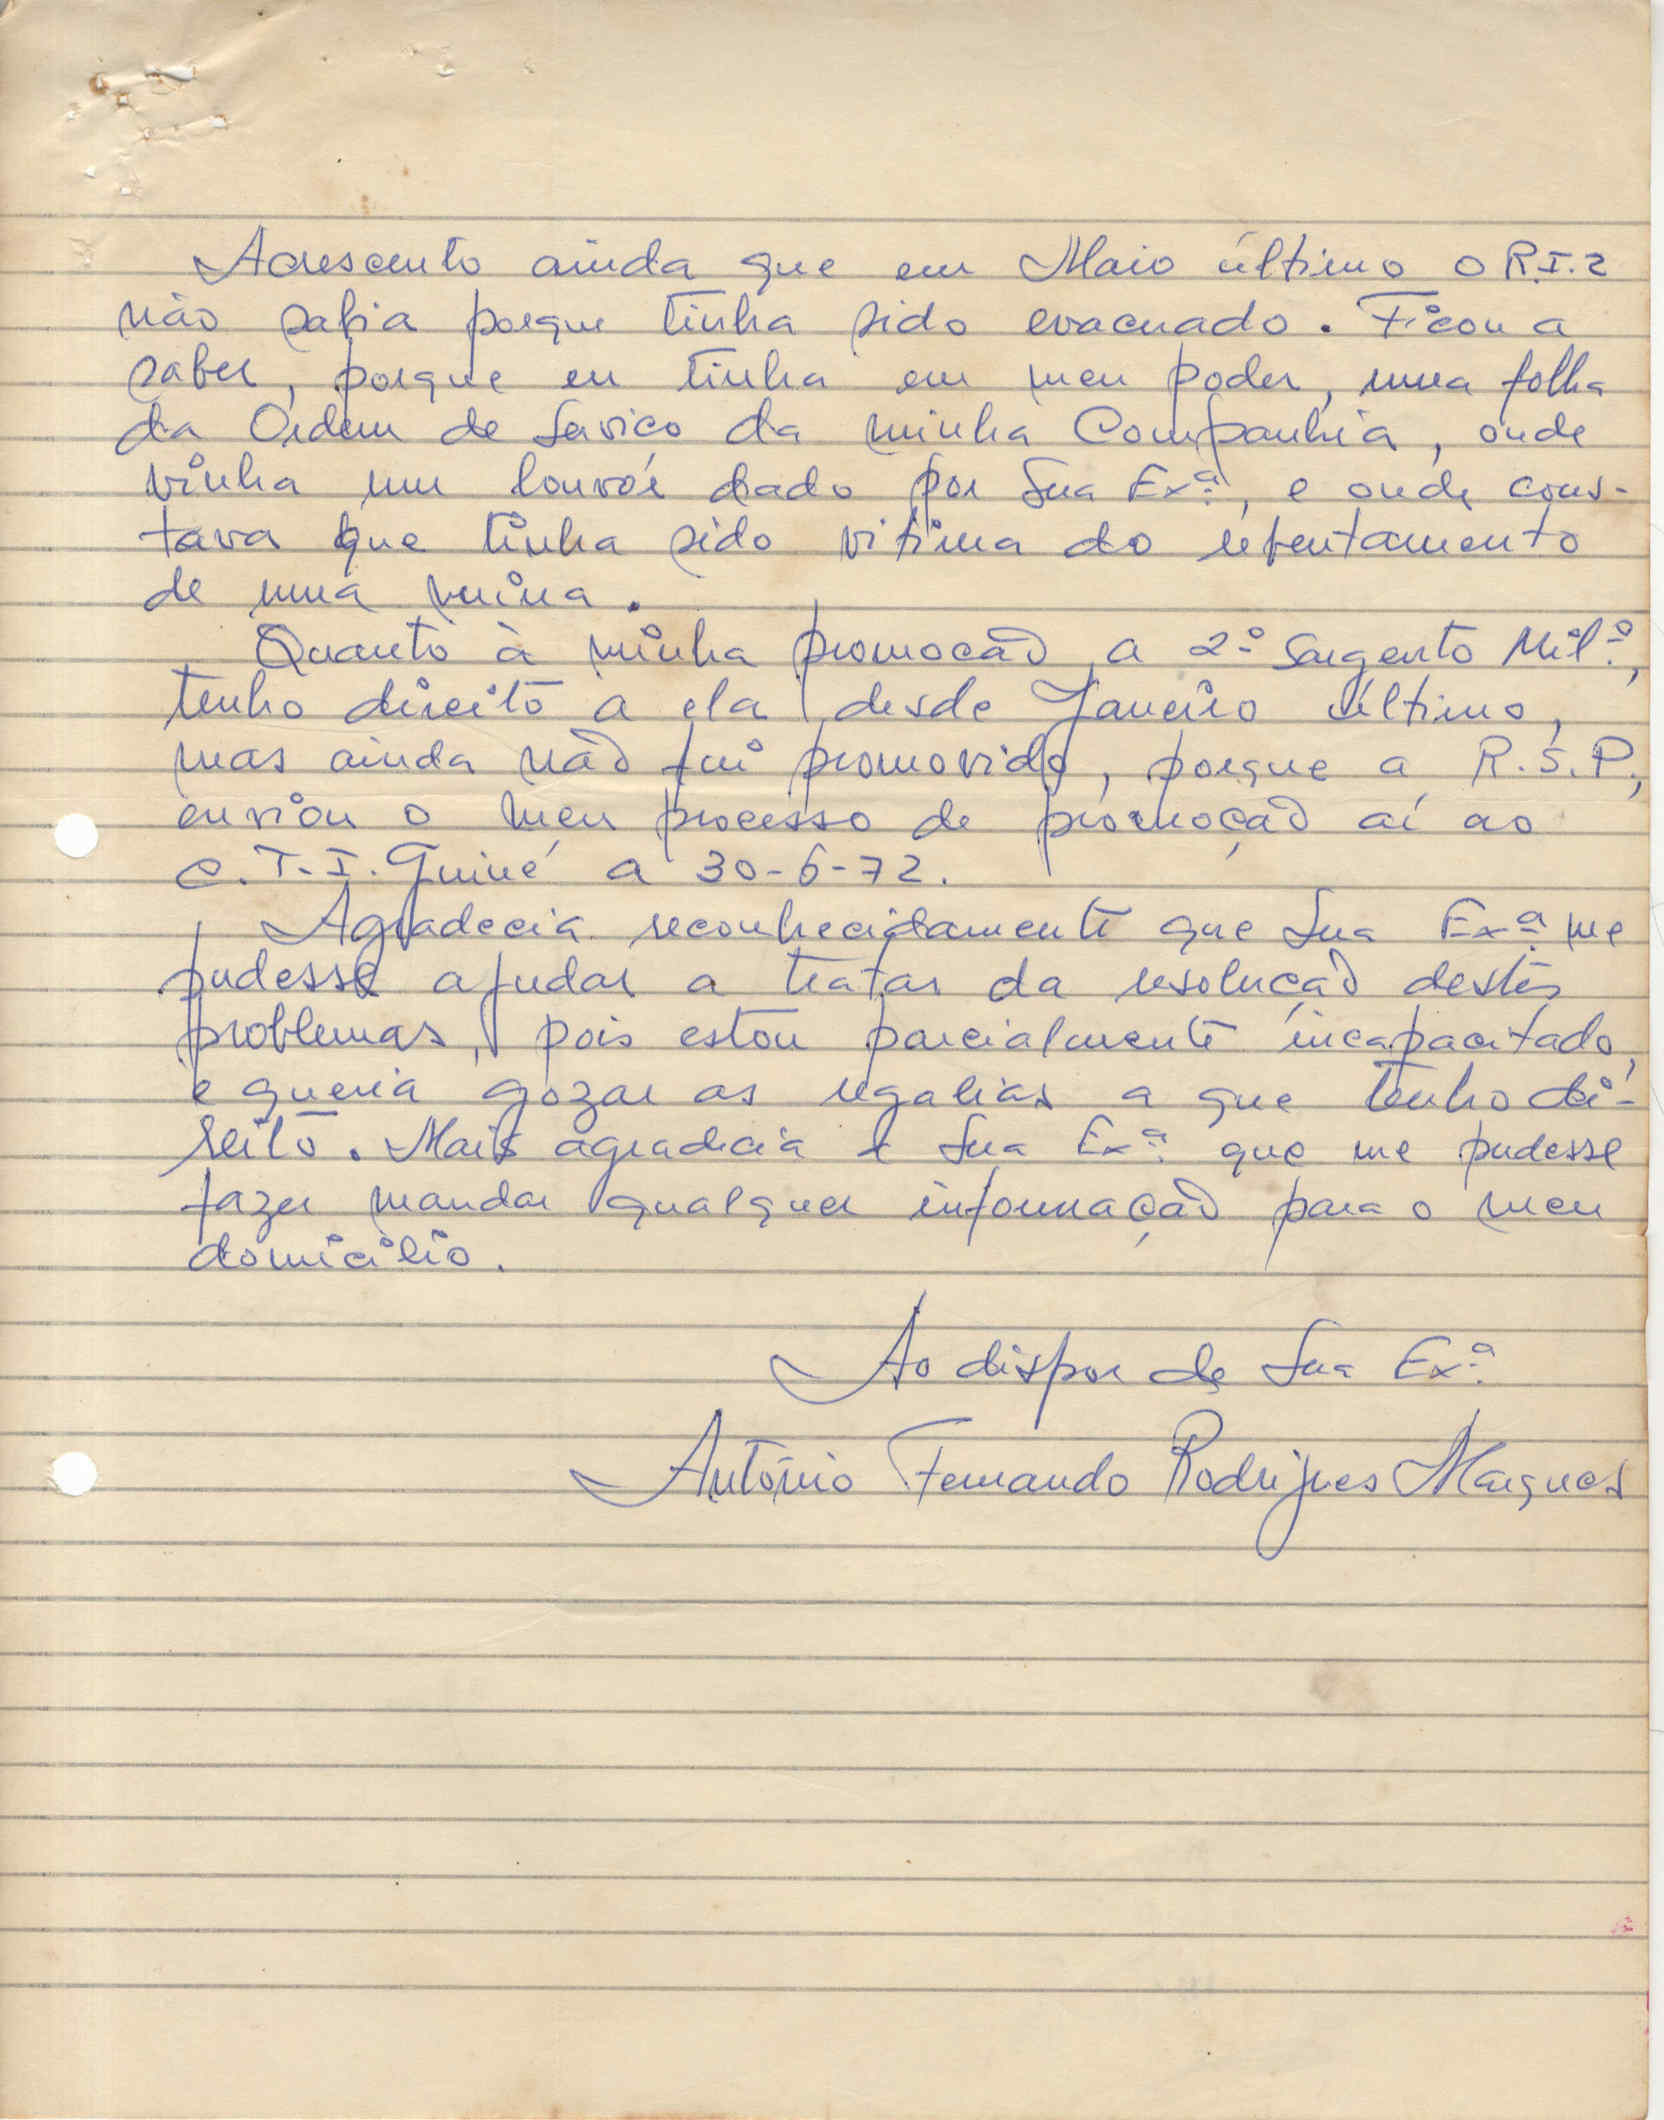 Acrescento ainda que em Maio último o R.I.2
não sabia porque tinha sido evacuado. Ficou a
saber, porque eu tinha em meu poder, uma folha
da Ordem de Serviço da minha Companhia, onde
vinha um louvor dado por Sua Exª, e onde cons-
tava que tinha sido vitima do rebentamento
de uma mina.
Quanto à minha promoção a 2º Sargento Milº,
tenho direito a ela desde Janeiro último,
mas ainda não fui promovido, porque a R.S.P.,
enviou o meu processo de promoção aí ao
C.T.I. Guiné a 30-6-72.
Agradecia reconhecidamente que Sua Exª me
pudesse ajudar a tratar da resolução destes
problemas, pois estou parcialmente incapacitado,
e queria gozar as regalias a que tenho di-
reito. Mais agradecia a Sua Exª que me pudesse
fazer mandar qualquer informação para o meu
domicilio.
Ao dispor de Sua Exª
António Fernando Rodrigues Marques